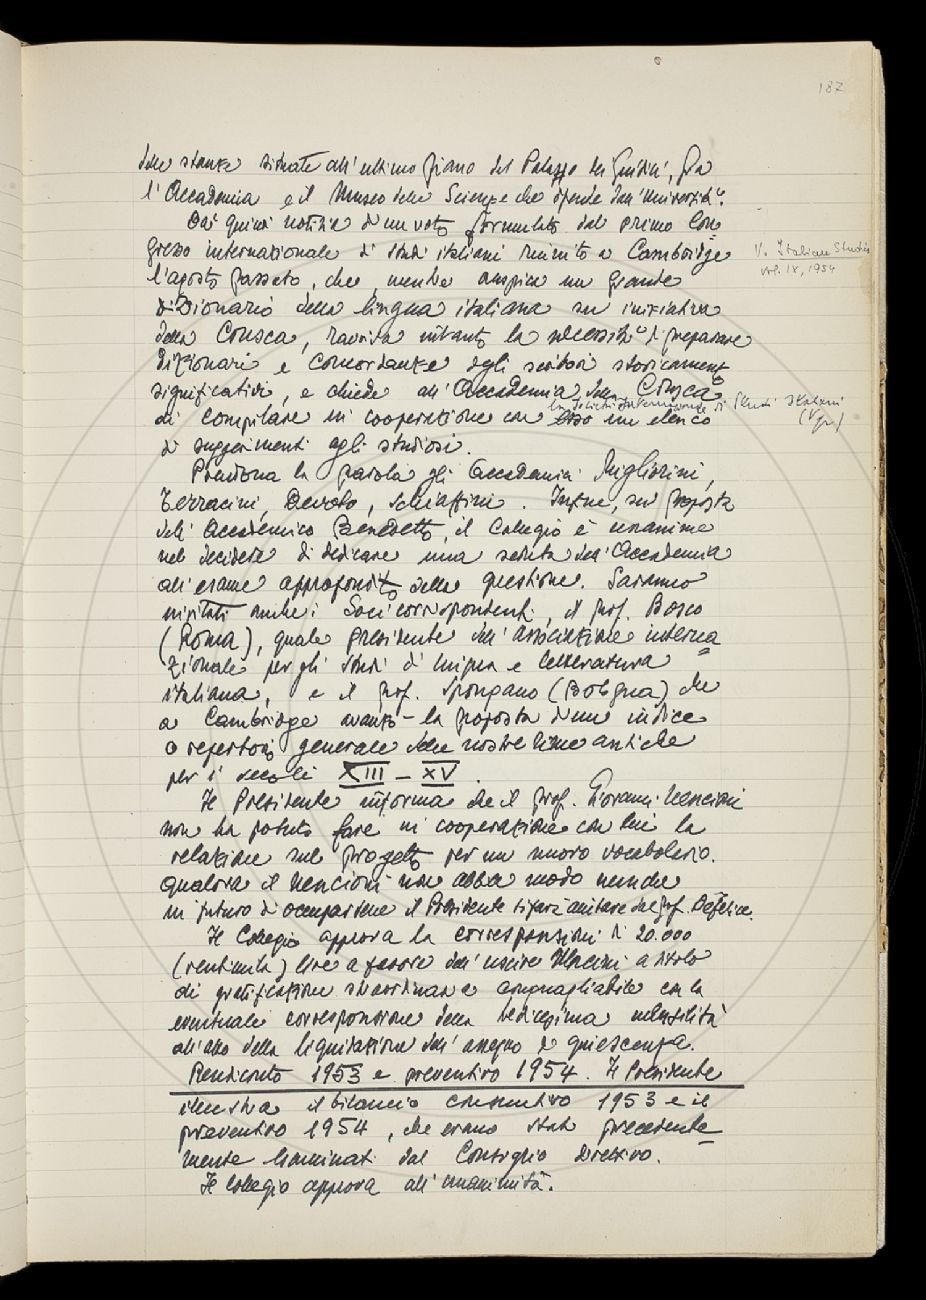 187
delle stanze situate all'ultimo piano del Palazzo dei Giudici, fra
l'Accademia e il Museo delle Scienze che dipende dall'Università.
Dà quindi notizia d'un voto formulato dal primo Con=
gresso internazionale di studi italiani riunito a Cambridge
V. Italian Studies
vol. IX, 1954
l'agosto passato, che, mentre auspica un grande
dizionario della lingua italiana su iniziativa
della Crusca, ravvisa intanto la necessità di preparare
dizionari e concordanze degli scrittori storicamente
significativi, e chiede all'Accademia della Crusca
di compilare in cooperazione con esso un elenco
la Società Internazionale di Studi Italiani
di suggerimenti agli studiosi.
Prendono la parola gli Accademici Migliorini,
Terracini, Devoto, Schiaffini. Infine, su proposta
dell'Accademico Benedetto, il Collegio è unanime
nel decidere di dedicare una seduta dell'Accademia
all'esame approfondito della questione. Saranno
invitati anche i Soci corrispondenti, il prof. Bosco
(Roma), quale presidente dell'associazione interna=
zionale per gli studi di lingua e letteratura
italiana, e il prof. Spongano (Bologna) che
a Cambridge avanzò la proposta d'un indice
o repertorio generale delle nostre rime antiche
per i secoli XIII - XV.
Il Presidente informa che il prof. Giovanni Nencioni
non ha potuto fare in cooperazione con lui la
relazione sul progetto per un nuovo vocabolario.
Qualora il Nencioni non abbia modo neanche
in futuro di occuparsene il Presidente si farà aiutare dal prof. De Felice.
Il Collegio approva la corresponsione di 20.000
(ventimila) lire a favore dell'usciere a titolo
di gratificazione straordinaria conguagliabile con la
eventuale corresponsione della tredicesima mensilità
all'atto della liquidazione dell'assegno di quiescenza.
Rendiconto 1953 e preventivo 1954. Il Presidente
illustra il bilancio consuntivo 1953 e il
preventivo 1954, che erano stati precedente=
mente esaminati dal Consiglio Direttivo.
Il Collegio approva all'unanimità.